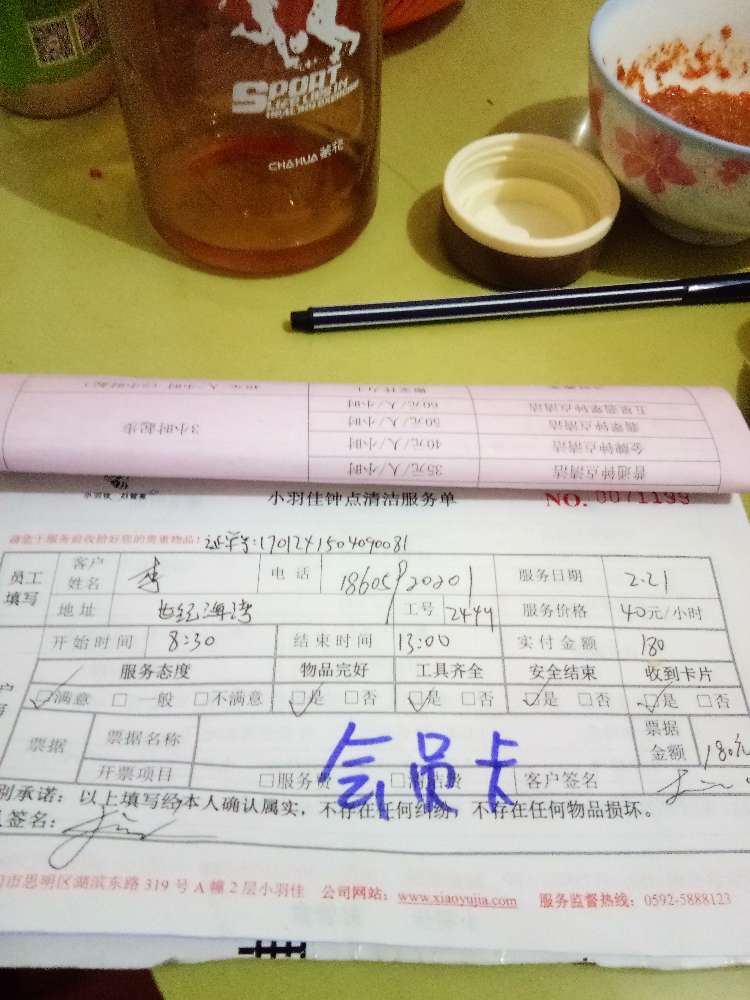 SPORT
CHAHUA 茶花
3小时起步
60元/人/小时 五星翡翠钟点清洁
50元/人/小时 翡翠钟点清洁
40元/人/小时 金牌钟点清洁
35元/人/小时 普通钟点清洁
小羽佳钟点清洁服务单 NO. 0071199
证券号:1701241504090081
员工填写 客户姓名 李 电话 服务日期 2.21
地址 世纪海湾 工号 2444 服务价格 40元/小时
开始时间 8:30 结束时间 13:00 实付金额 180
服务态度 物品完好 工具齐全 安全结束 收到卡片
☑满意 □一般 □不满意 ☑是 □否 ☑是 □否 ☑是 □否 ☑是 □否
票据 票据名称 票据金额 180元
开票项目 □服务费 □清洁费 客户签名
会员卡
别承诺：以上填写经本人确认属实，不存在任何纠纷，不存在任何物品损坏。
签名：
市思明区湖滨东路319号A幢2层小羽佳 公司网站：www.xiaoyujia.com 服务监督热线：0592-5888123